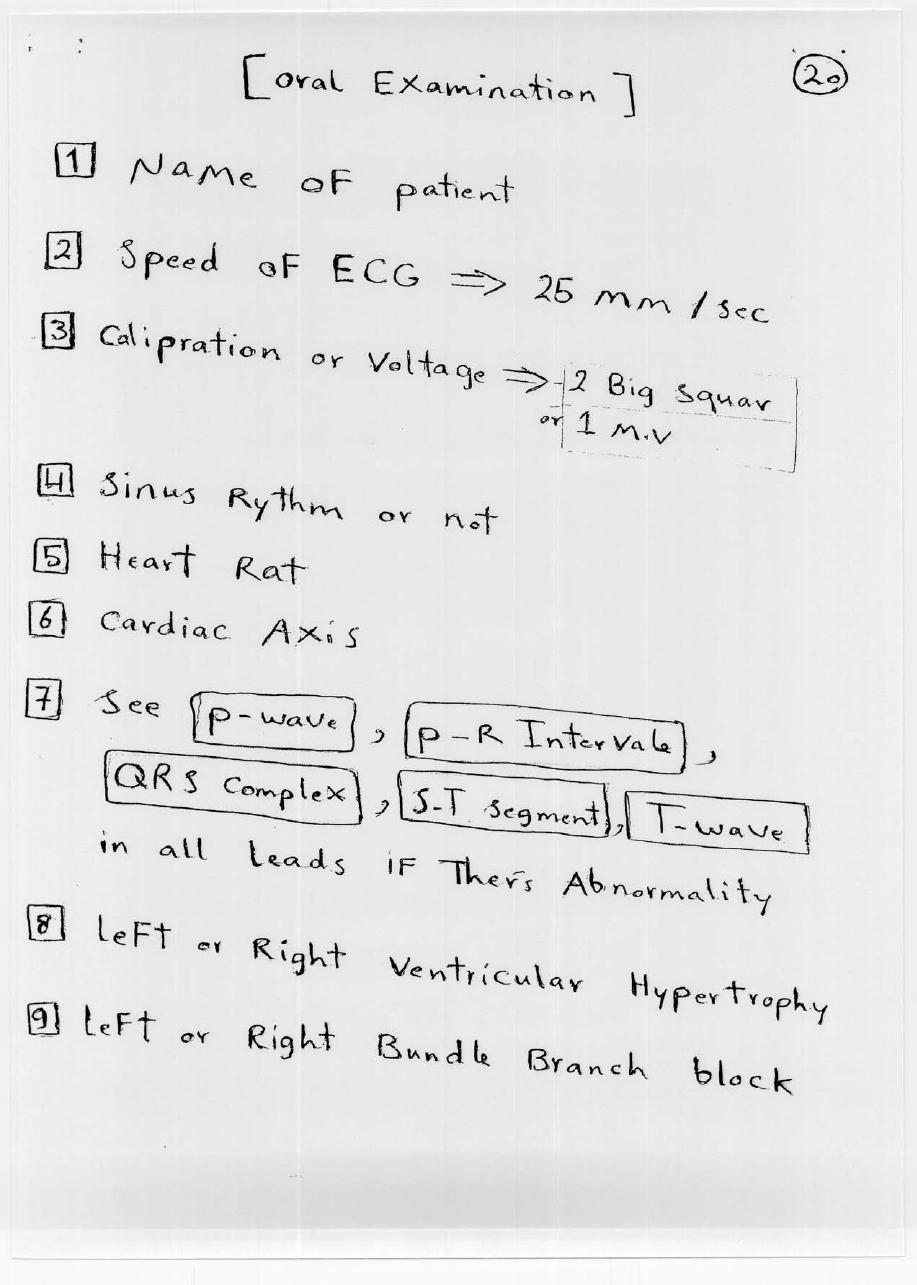 [Oral Examination] 20
1 Name of patient
2 Speed of ECG ⇒ 25 mm / sec
3 Calipration or Voltage ⇒ 2 Big Squar
or 1 M.V
4 Sinus Rythm or not
5 Heart Rat
6 Cardiac Axis
7 See P-wave, P-R Intervale,
QRS Complex, S-T Segment, T-wave
in all Leads if Thers Abnormality
8 Left or Right Ventricular Hypertrophy
9 Left or Right Bundle Branch block